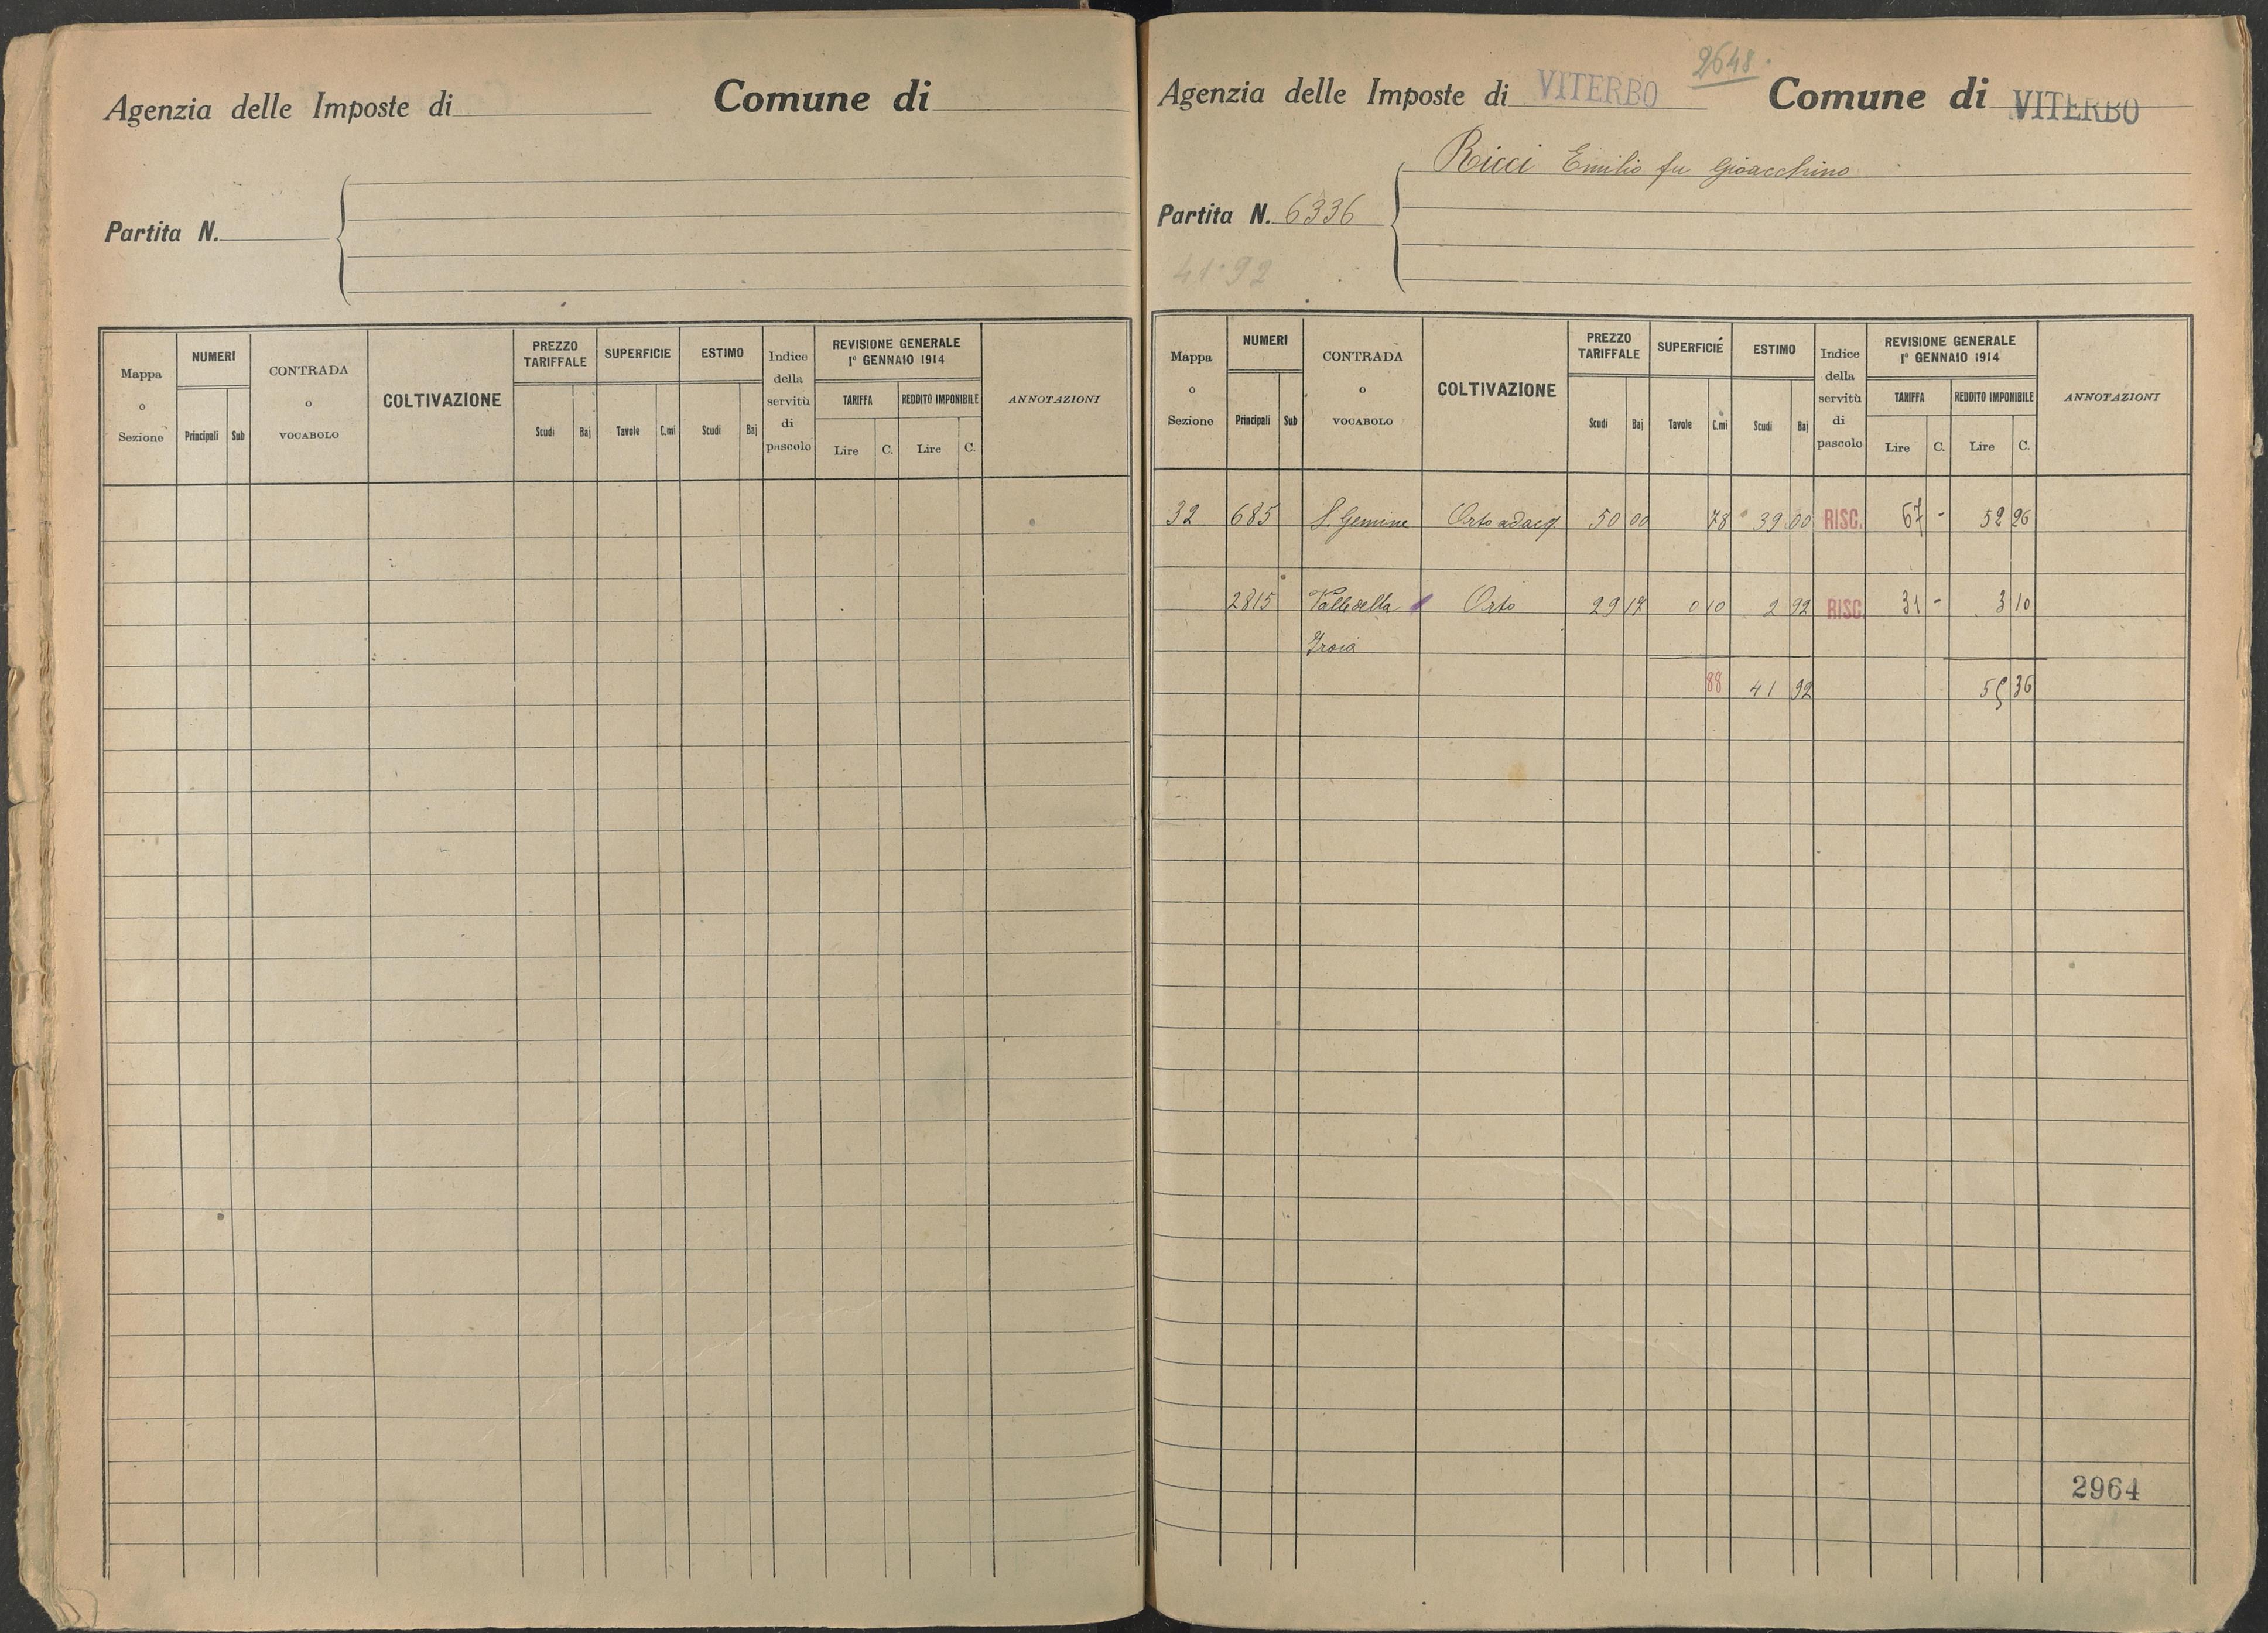 Agenzia delle Imposte di Comune di
Partita N.
Mappa o Sezione NUMERI Principali Sub CONTRADA o VOCABOLO COLTIVAZIONE PREZZO TARIFFALE Scudi Baj SUPERFICIE Tavole C.mi ESTIMO Scudi Baj Indice della servitù di pascolo REVISIONE GENERALE 1° GENNAIO 1914 TARIFFA Lire C. REDDITO IMPONIBILE Lire C. ANNOTAZIONI
2648.
Agenzia delle Imposte di VITERBO Comune di VITERBO
Ricci Emilio fu Gioacchino
Partita N. 6336
41.92
Mappa o Sezione NUMERI Principali Sub CONTRADA o VOCABOLO COLTIVAZIONE PREZZO TARIFFALE Scudi Baj SUPERFICIE Tavole C.mi ESTIMO Scudi Baj Indice della servitù di pascolo REVISIONE GENERALE 1° GENNAIO 1914 TARIFFA Lire C. REDDITO IMPONIBILE Lire C. ANNOTAZIONI
32 685 S. Gemine Orto adacq. 50 00 78 39 00 RISC. 67 - 52 26
2815 Valle della Orto 29 17 0 10 2 92 RISC. 31 - 3 10
Troia
88 41 92 55 36
2964